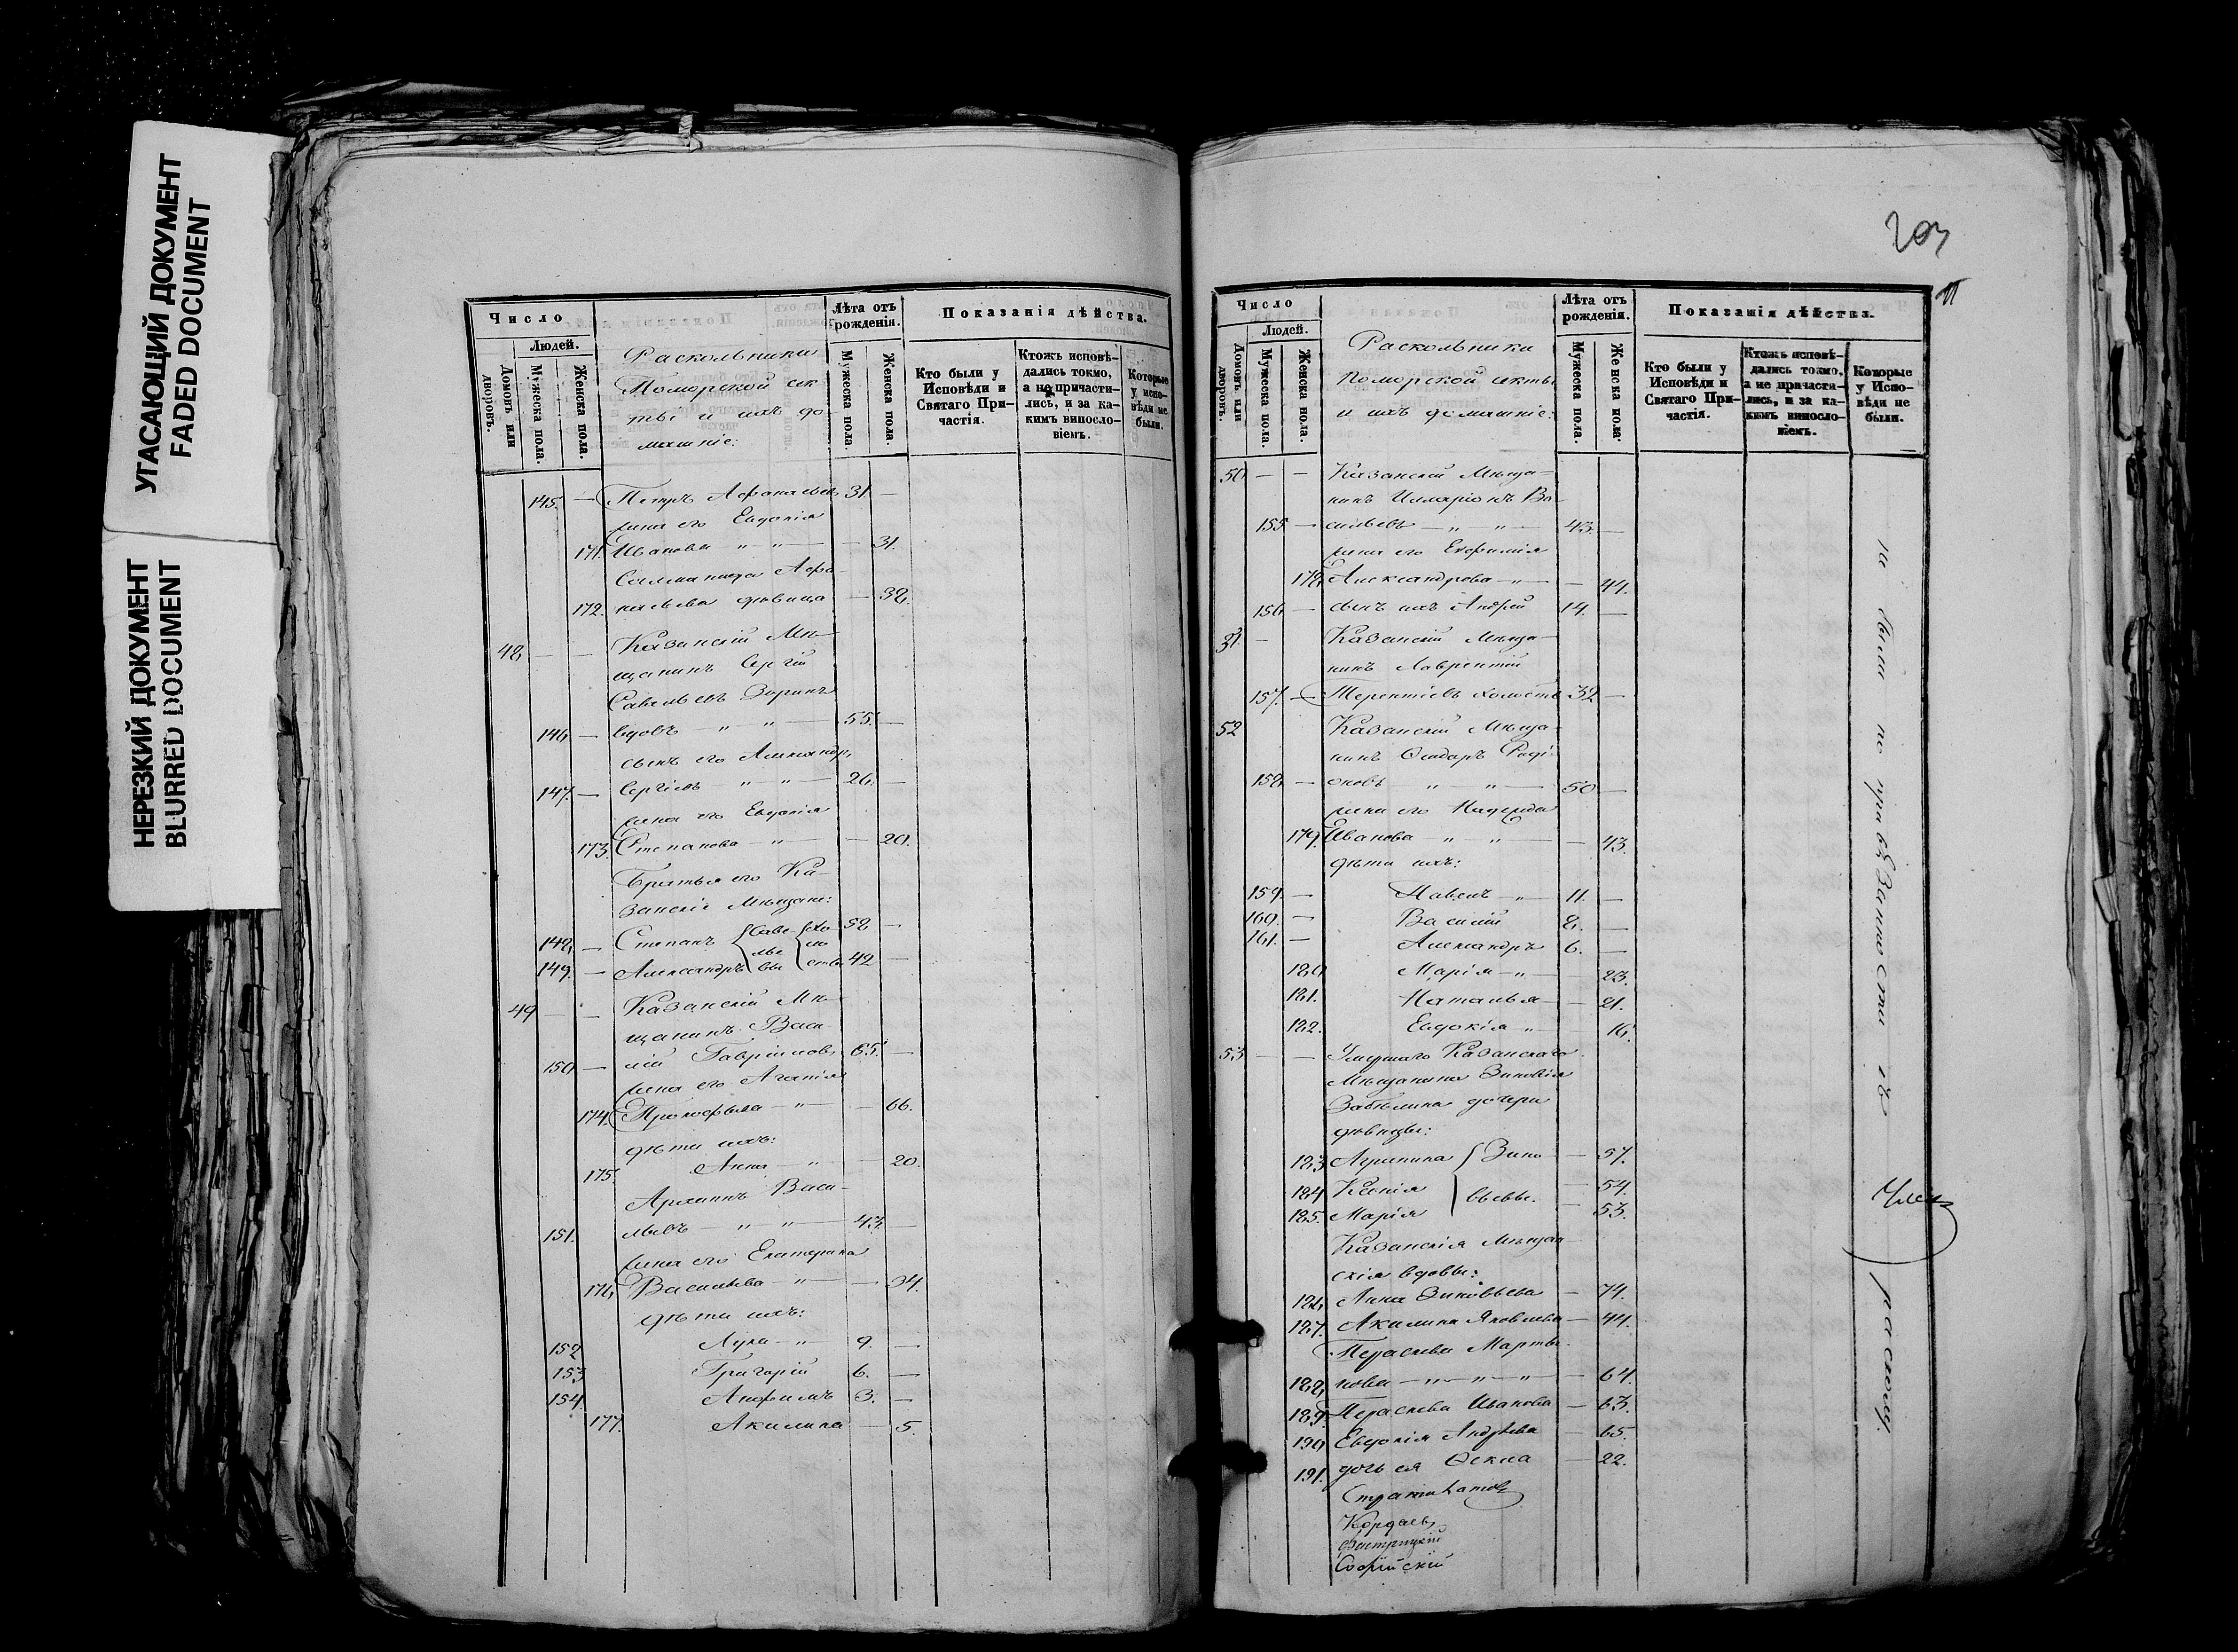 УГАСАЮЩИЙ ДОКУМЕНТ
FADED DOCUMENT
НЕРЕЗКИЙ ДОКУМЕНТ
BLURRED DOCUMENT
Число
Людей.
Домовъ или дворовъ.
Мужеска пола.
Женска пола.
Раскольники
Поморской сек-
ты и ихъ до-
машніе:
Лѣта отъ рожденія.
Мужеска пола.
Женска пола.
Показанія дѣйства.
Кто были у Исповѣди и Святаго При-
частія.
Ктожъ исповѣ-
дались токмо,
а не причасти-
лись, и за ка-
кимъ виносло-
віемъ.
Которые
у испо-
вѣди не
были.
145. — Петръ Афанасьевъ 31 —
жена его Евдокія
171. Иванова — " — " — — 31.
Афа-
172. насьева дѣвица — 32.
48 — — Казанскій Мѣ-
щанинъ Сергій
Савельевъ Зоринъ
146 — вдовъ — " — " — 55. —
сынъ его Александръ
147. — Сергіевъ — " — " — 26. —
жена его Евдокія
173. Степанова — " — — 20.
Братья его Ка-
занскіе Мѣщане:
148 — Степанъ Саве- хо- 52 —
лье- ло-
149. — Александръ вы сты 42 —
49 — — Казанскій Мѣ-
щанинъ Васи-
150 — лій Гавріиловъ 65. —
жена его Агапія
174. Прокофьева — " — — 66.
дѣти ихъ:
175. Анна — " — — 20.
Архипъ Васи-
151. льевъ " — " — 43. —
жена его Екатерина
176 Васильева — " — — 34.
дѣти ихъ:
152 Лука — " — 9. —
153 Григорій 6. —
154. Анфимъ 3. —
177. Акилина — 5.
203
11
Число
Людей.
Домовъ или дворовъ.
Мужеска пола.
Женска пола.
Раскольники
Поморской секты
и ихъ домашніе:
Лѣта отъ рожденія.
Мужеска пола.
Женска пола.
Показанія дѣйства.
Кто были у Исповѣди и Святаго При-
частія.
Ктожъ исповѣ-
дались токмо,
а не причасти-
лись, и за ка-
кимъ виносло-
віемъ.
Которые
у Испо-
вѣди не
были.
50 — — Казанскій Мѣща-
нинъ Илларіонъ Ва-
155 — сильевъ — " — " — 43. —
жена его Евфимія
178 Александрова — " — — 44.
156 — сынъ ихъ Андрей 14. —
51 — Казанскій Мѣща-
нинъ Лаврентій
157. — Терентіевъ холостъ 32 —
52 Казанскій Мѣща-
нинъ Ѳеодоръ Роді-
158 — оновъ " — " — 50 —
жена его Надежда
179. Иванова — " — " — 43.
дѣти ихъ:
159. — Павелъ — " — 11. —
160. — Василій 8. —
161. — Александръ 6. —
180 Марія — " — 23.
181. Наталья — — 21.
182. Евдокія " — 16.
53 — — Умершаго Казанскаго
Мѣщанина Зиновія
Забѣлина дочери
дѣвицы:
183 Агрипина Зино- — 57.
184 Ксенія вьевы. — 54.
185. Марія — 53.
Казанскія Мѣщан-
скія вдовы:
186 Анна Зиновьева — 74.
187. Акилина Яковлева — 44.
Параскева Марты-
188 нова — " — " — " — 64.
189. Параскева Иванова — 63.
190 Евдокія Андреева — 65.
191. дочь ея Ѳекла — 22.
Софійскій